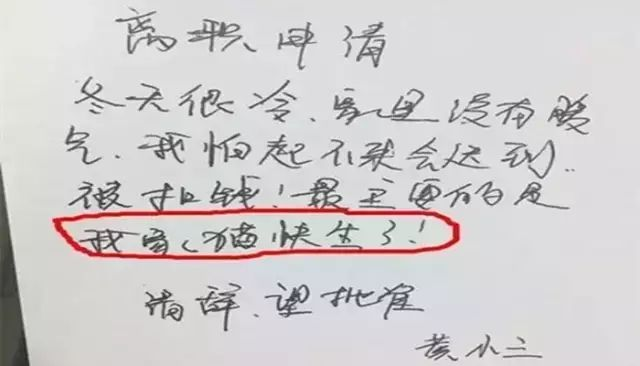 离职申请
冬天很冷、家里没有暖
气、我怕起不来会迟到、
被扣钱！最主要的是
我家猫快生了！
请辞、望批准
黄小三